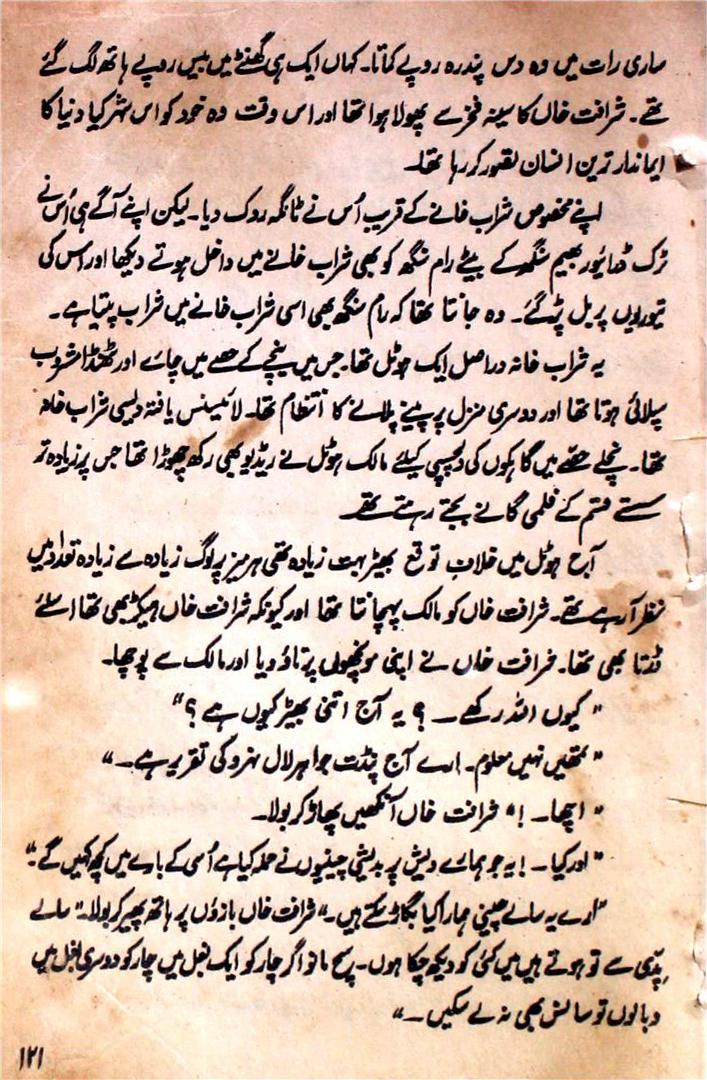 ساری رات میں وہ دس پندرہ روپے کماتا۔ کہاں ایک ہی گھنٹے میں بیس روپے ہاتھ لگ گئے
تھے۔ شرافت خاں کا سینہ فخر سے پھولا ہوا تھا اور اس وقت وہ خود کو اس شہر کیا دنیا کا
ایماندار ترین انسان تصور کر رہا تھا۔
اپنے مخصوص شراب خانے کے قریب اُس نے ٹانگہ روک دیا۔ لیکن اپنے آگے ہی اُس نے
ٹرک ڈرائیور بھیم سنگھ کے بیٹے رام سنگھ کو بھی شراب خانے میں داخل ہوتے دیکھا اور اس کی
تیوریوں پر بل پڑ گئے۔ وہ جانتا تھا کہ رام سنگھ بھی اسی شراب خانے میں شراب پیتا ہے۔
یہ شراب خانہ دراصل ایک ہوٹل تھا۔ جس میں نیچے کے حصے میں چائے اور ٹھنڈا مشروب
سپلائی ہوتا تھا اور دوسری منزل پر پینے پلانے کا انتظام تھا۔ لائیسنس یافتہ دلیسی شراب خانہ
تھا۔ نچلے حصے میں گاہکوں کی دلچسپی کیلئے مالک ہوٹل نے ریڈیو بھی رکھ چھوڑا تھا جس پر زیادہ تر
سستے قسم کے فلمی گانے بجتے رہتے تھے۔
آج ہوٹل میں خلافِ توقع بھیڑ بہت زیادہ تھی ہر میز پر لوگ زیادہ سے زیادہ تعداد میں
نظر آ رہے تھے۔ شرافت خاں کو مالک پہچانتا تھا اور کیونکہ شرافت خاں ہیکڑ بھی تھا اسلئے
ڈرتا بھی تھا۔ شرافت خاں نے اپنی مونچھوں پر تاؤ دیا اور مالک سے پوچھا۔
"کیوں اللہ رکھے ــ ؟ یہ آج اتنی بھیڑ کیوں ہے ؟"
"تمھیں نہیں معلوم۔ ارے آج پنڈت جواہر لال نہرو کی تقریر ہے ــ"
"اچھا ــ !" شرافت خاں آنکھیں پھاڑ کر بولا۔
"اور کیا ــ ! یہ جو ہمارے دیش پر بدیشی چینیوں نے حملہ کیا ہے اُسی کے بارے میں کچھ کہیں گے۔"
"ارے یہ سالے چینی ہمارا کیا بگاڑ سکتے ہیں۔" شرافت خاں بازوؤں پر ہاتھ پھیر کر بولا۔ "سالے
پِدّی سے تو ہوتے ہیں میں کئی کو دیکھ چکا ہوں۔ پر سچ مانو اگر چار کو ایک بغل میں چار کو دوسری بغل میں
دبا لوں تو سانس بھی نہ لے سکیں ــ"
۱۲۱